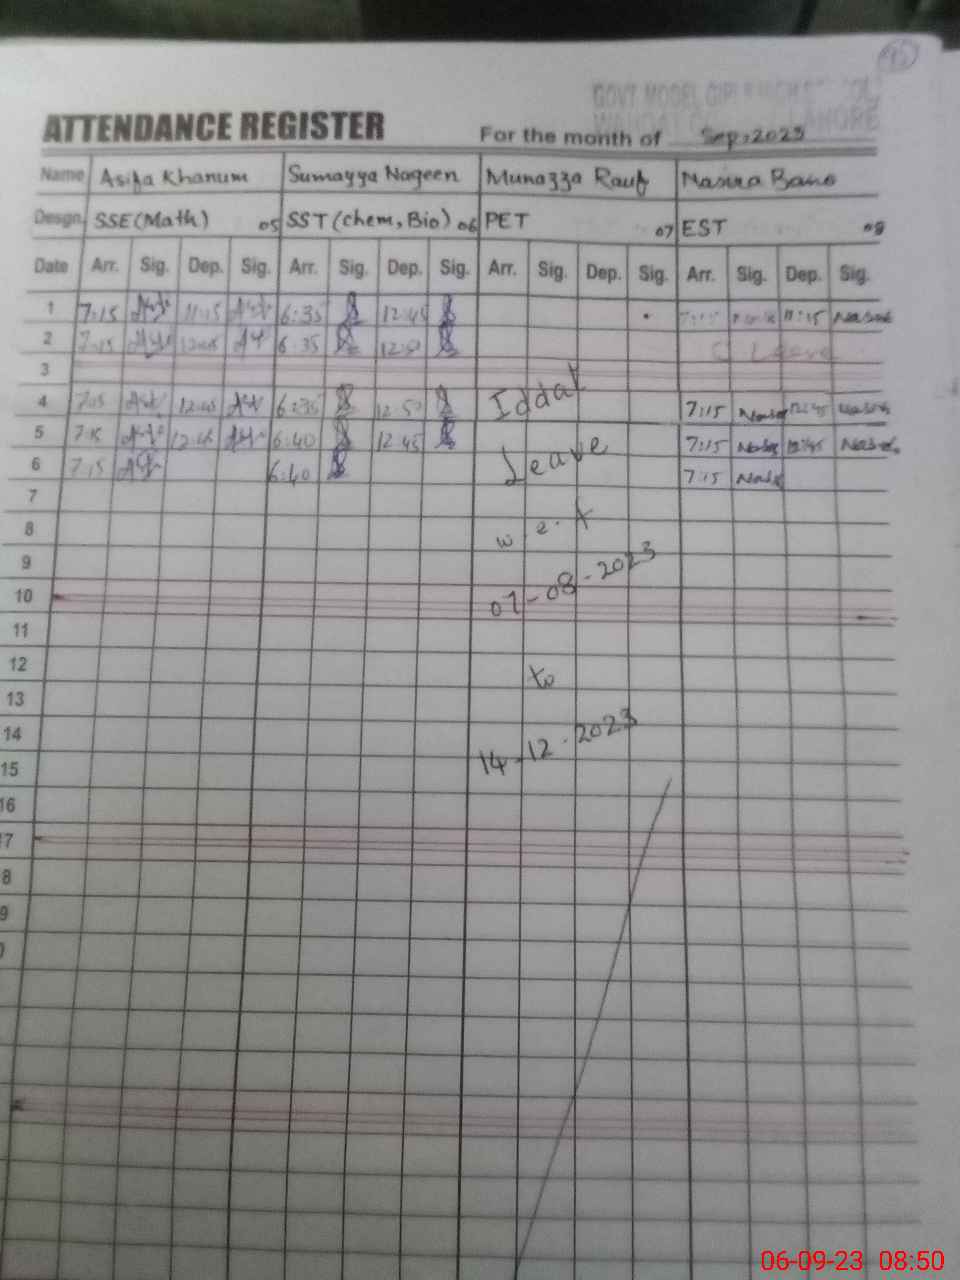 GOVT MODEL GIRLS HIGH
LAHORE
ATTENDANCE REGISTER For the month of Sep, 2023
Name Asifa Khanum Sumayya Nageen Munazza Rauf Nasira Bano
Desgn. SSE (Math) 05 SST (Chem, Bio) 06 PET 07 EST 08
Date Arr. Sig. Dep. Sig. Arr. Sig. Dep. Sig. Arr. Sig. Dep. Sig. Arr. Sig. Dep. Sig.
1 7:15 11:15 6:35 12:45 7:15 11:15
2 7:15 6:35 12:50 C Leave
3
4 7:15 12:45 6:35 12:50 Iddat 7:15 12:45
5 7:15 12:45 6:40 12:45 Leave 7:15 12:45
6 7:15 6:40 7:15
7
8 w.e.f
9
10 07-08-2023
11
12 to
13
14 14-12-2023
15
16
17
8
9
06-09-23 08:50